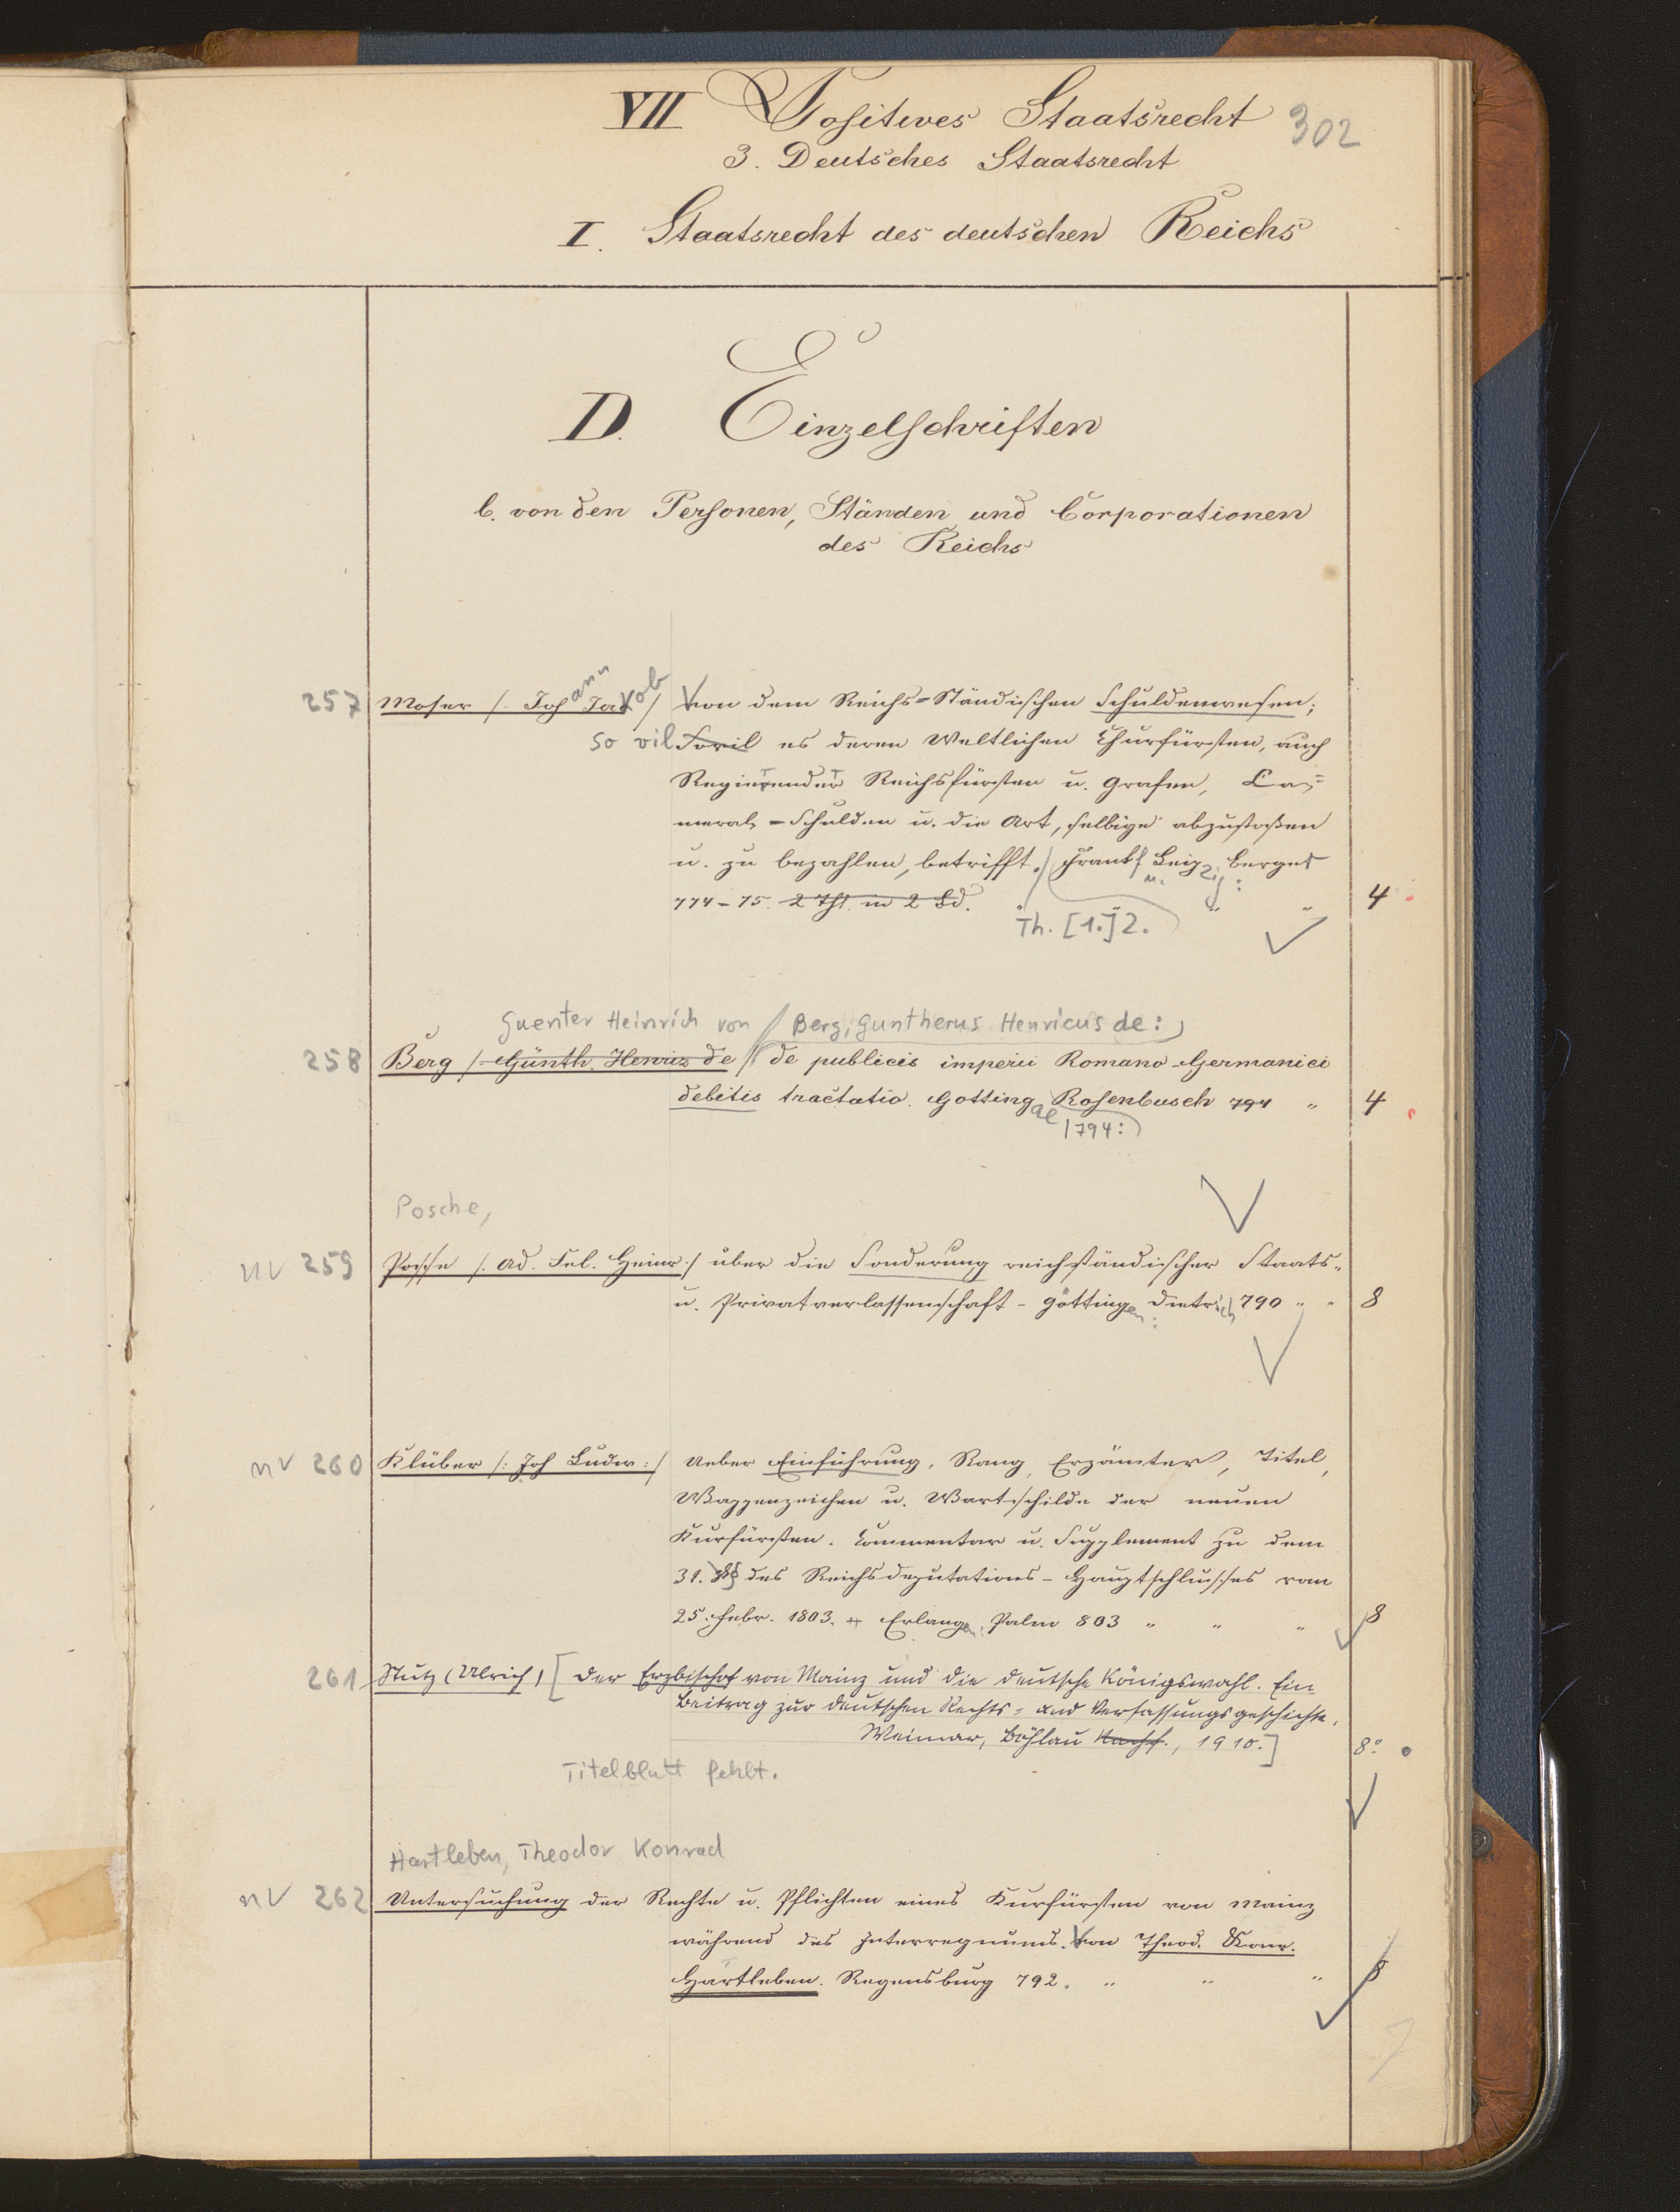 VII Positives Staatsrecht 302
3. Deutsches Staatsrecht
I. Staatsrecht des deutschen Reichs
D. Einzelschriften
b. von den Personen, Ständen und Corporationen
des Reichs
257 Moser /. Johann Jakob / Von dem Reichs-Ständischen Schuldenwesen;
so vil Sovil es deren Weltlichen Churfürsten, auch
Regierender Reichsfürsten u. Grafen, Ca=
meral-Schulden u. die Art, selbige abzustoßen
u. zu bezahlen, betrifft. / Frankf u. Leipzig: Berger
774-75. 2 Thl. in 2 Bd. " " " 4
Th. [1.] 2.
Guenter Heinrich von / Berg, Guntherus Henricus de:
258 Berg / Günth. Henric de / de publicis imperii Romano-Germanici
debitis tractatio. Gottingae Rosenbusch 794 " 4
1794:
Posche,
nv 259 Posse /. Ad. Fel. Heinr:/ über die Sonderung reichständischer Staats-
u. Privatverlassenschaft - Göttingen: Dietrich 790 " " 8
nv 260 Klüber /: Joh Ludw:/ Ueber Einführung, Rang, Erzämter, Titel,
Wappenzeichen u. Wartschilde der neuen
Kurfürsten. Commentar u. Supplement zu dem
31. § des Reichsdeputations-Hauptschlusses vom
25. Febr. 1803. Erlangen: Palm 803 " " " 8
261 Stutz (Ulrich) [Der Erzbischof von Mainz und die deutsche Königswahl. Ein
Beitrag zur deutschen Rechts- und Verfassungsgeschichte.
Weimar, Böhlau Nachf., 1910.] 8°
Titelblatt fehlt.
Hartleben, Theodor Konrad
nv 262 Untersuchung der Rechte u. Pflichten eines Kurfürsten von Mainz
während des Interregnums. Von Theod. Konr.
Hartleben. Regensburg 792. " " " 8